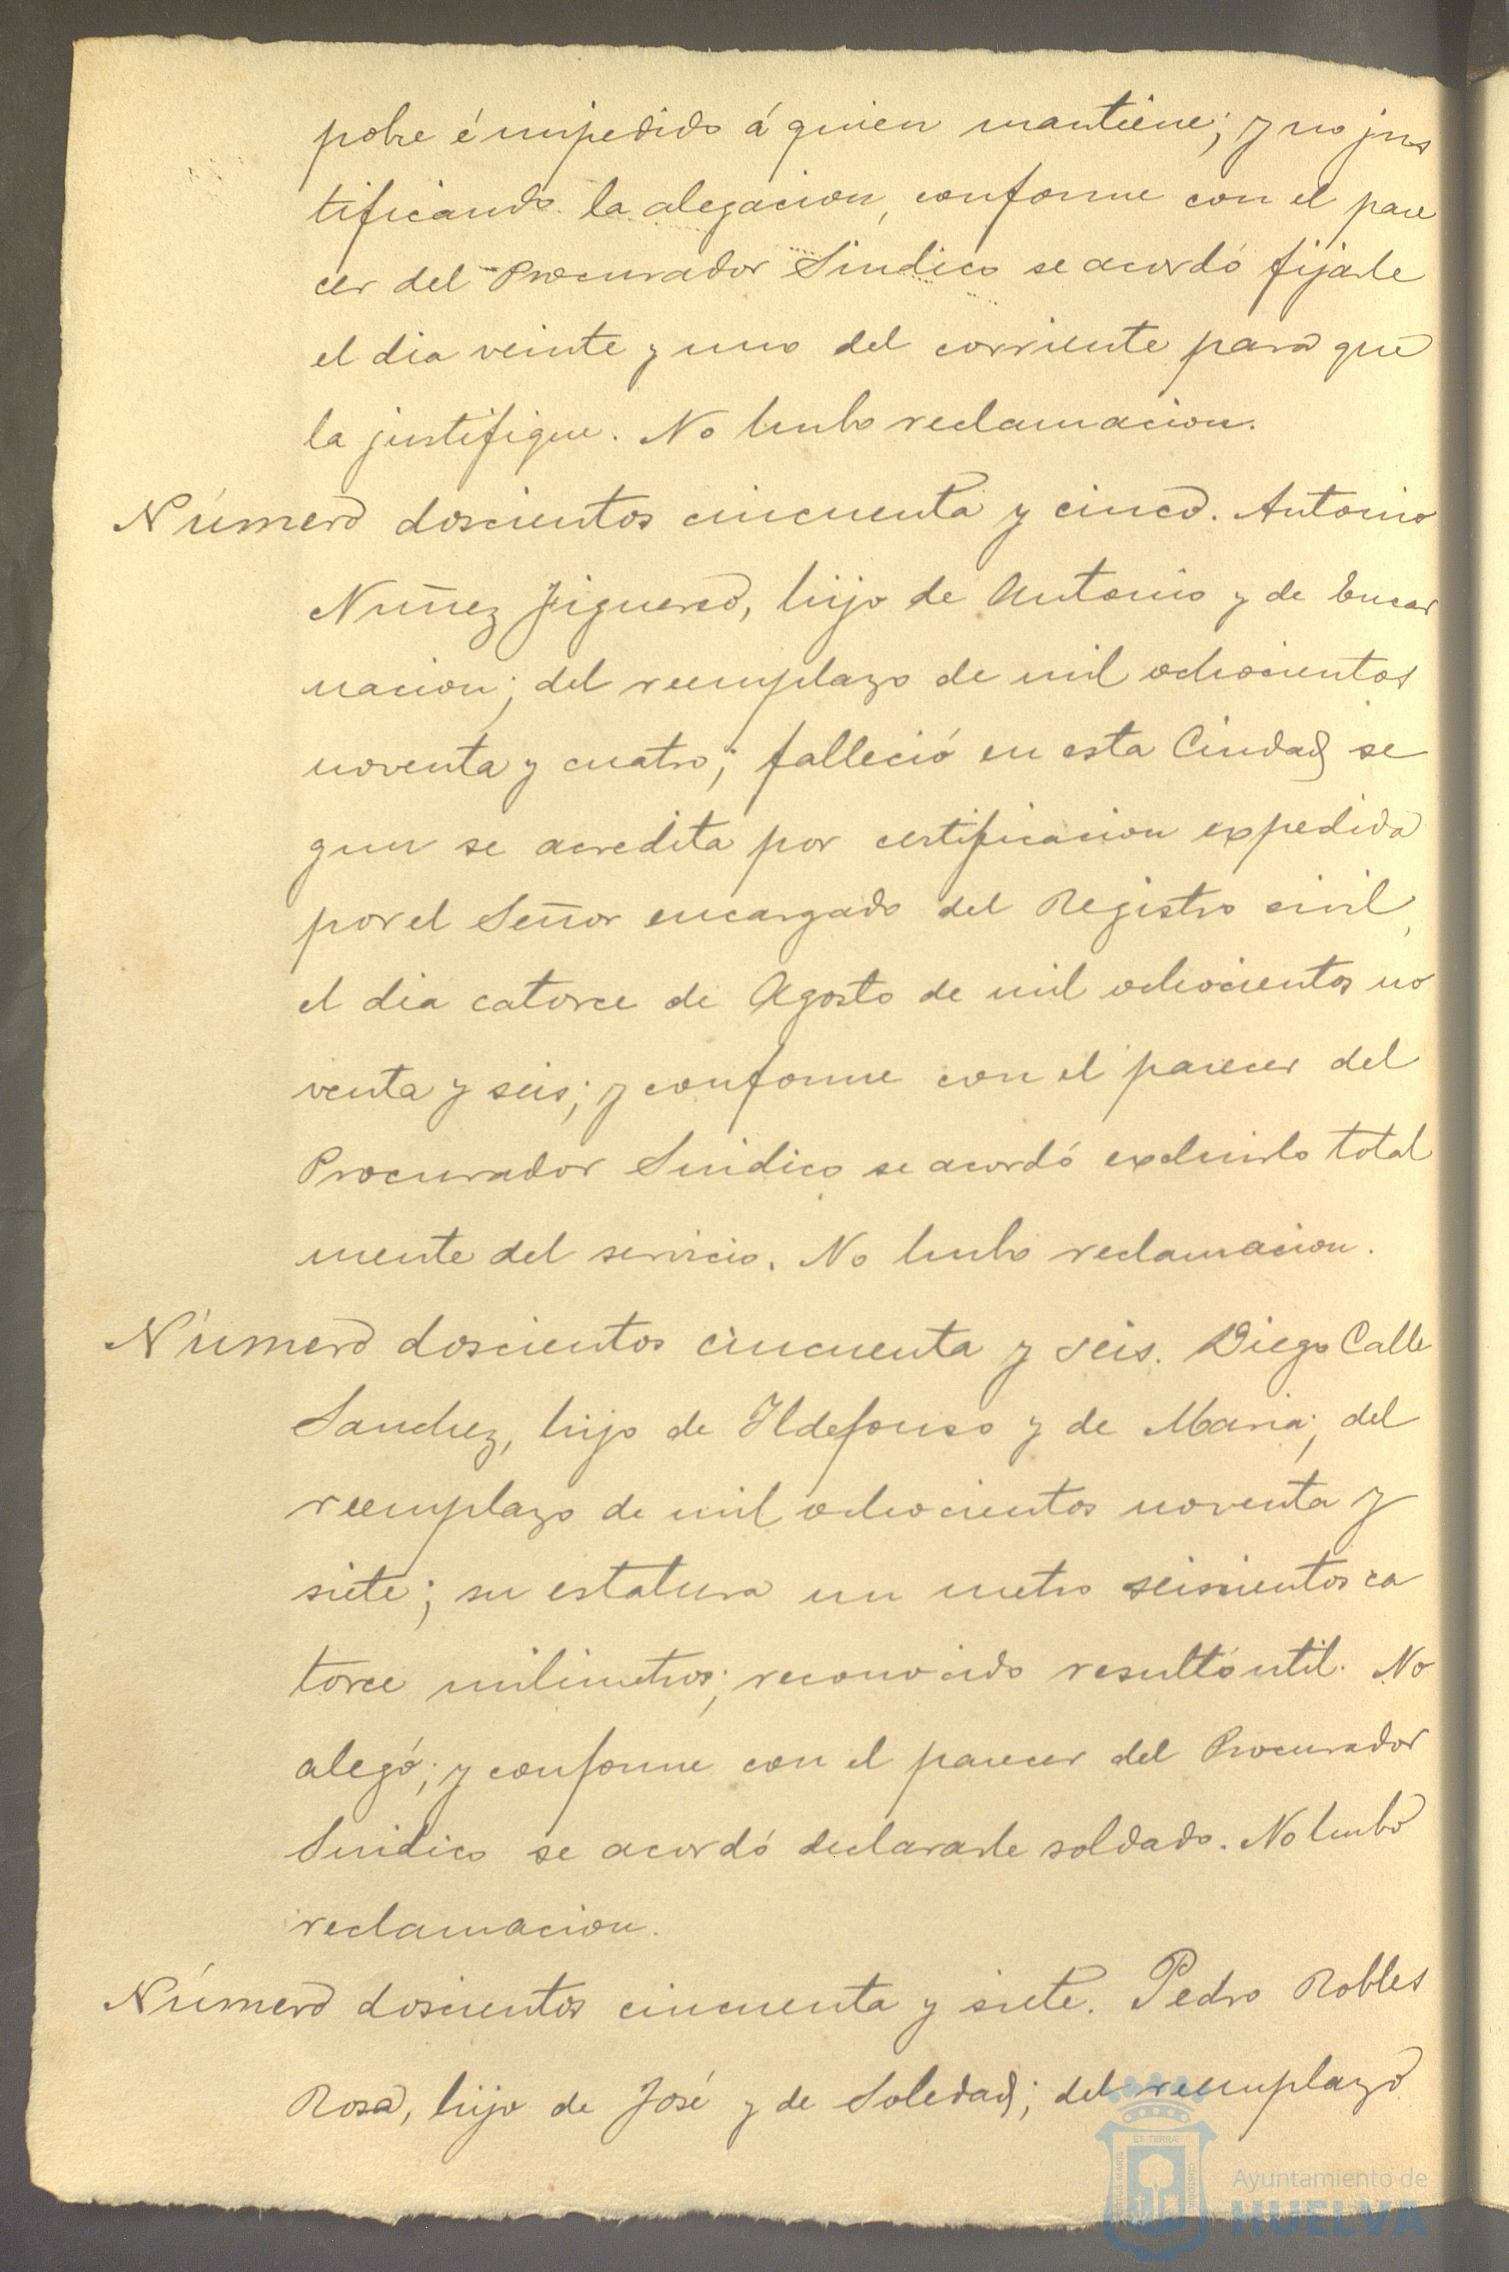 pobre é impedido á quien mantiene; y no jus
tificando la alegacion, conforme con el pare
cer del Procurador Sindico se acordó fijarle
el dia veinte y uno del corriente para que
la justifique. No hubo reclamacion.
Número doscientos cincuenta y cinco. Antonio
Nuñez Figuered, hijo de Antonio y de Encar
nacion; del reemplazo de mil ochocientos
noventa y cuatro; falleció en esta Ciudad se
gun se acredita por certificacion expedida
por el Señor encargado del Registro civil,
el dia catorce de Agosto de mil ochocientos no
venta y seis; y conforme con el parecer del
Procurador Sindico se acordó excluirlo total
mente del servicio. No hubo reclamacion.
Número doscientos cincuenta y seis. Diego Calle
Sanchez, hijo de Ildefonso y de Maria; del
reemplazo de mil ochocientos noventa y
siete; su estatura un metro seiscientos ca
torce milimetros; reconocido resultó util. No
alegó; y conforme con el parecer del Procurador
Sindico se acordó declararle soldado. No hubo
reclamacion.
Número doscientos cincuenta y siete. Pedro Robles
Rosa, hijo de José y de Soledad; del reemplazo
Ayuntamiento de
HUELVA